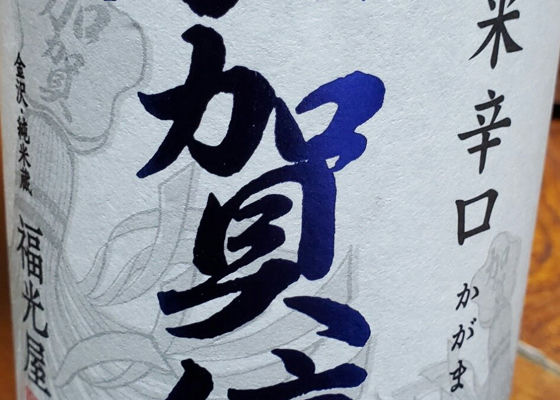 米辛口
かがま
賀
加賀
金沢・純米蔵
福光屋